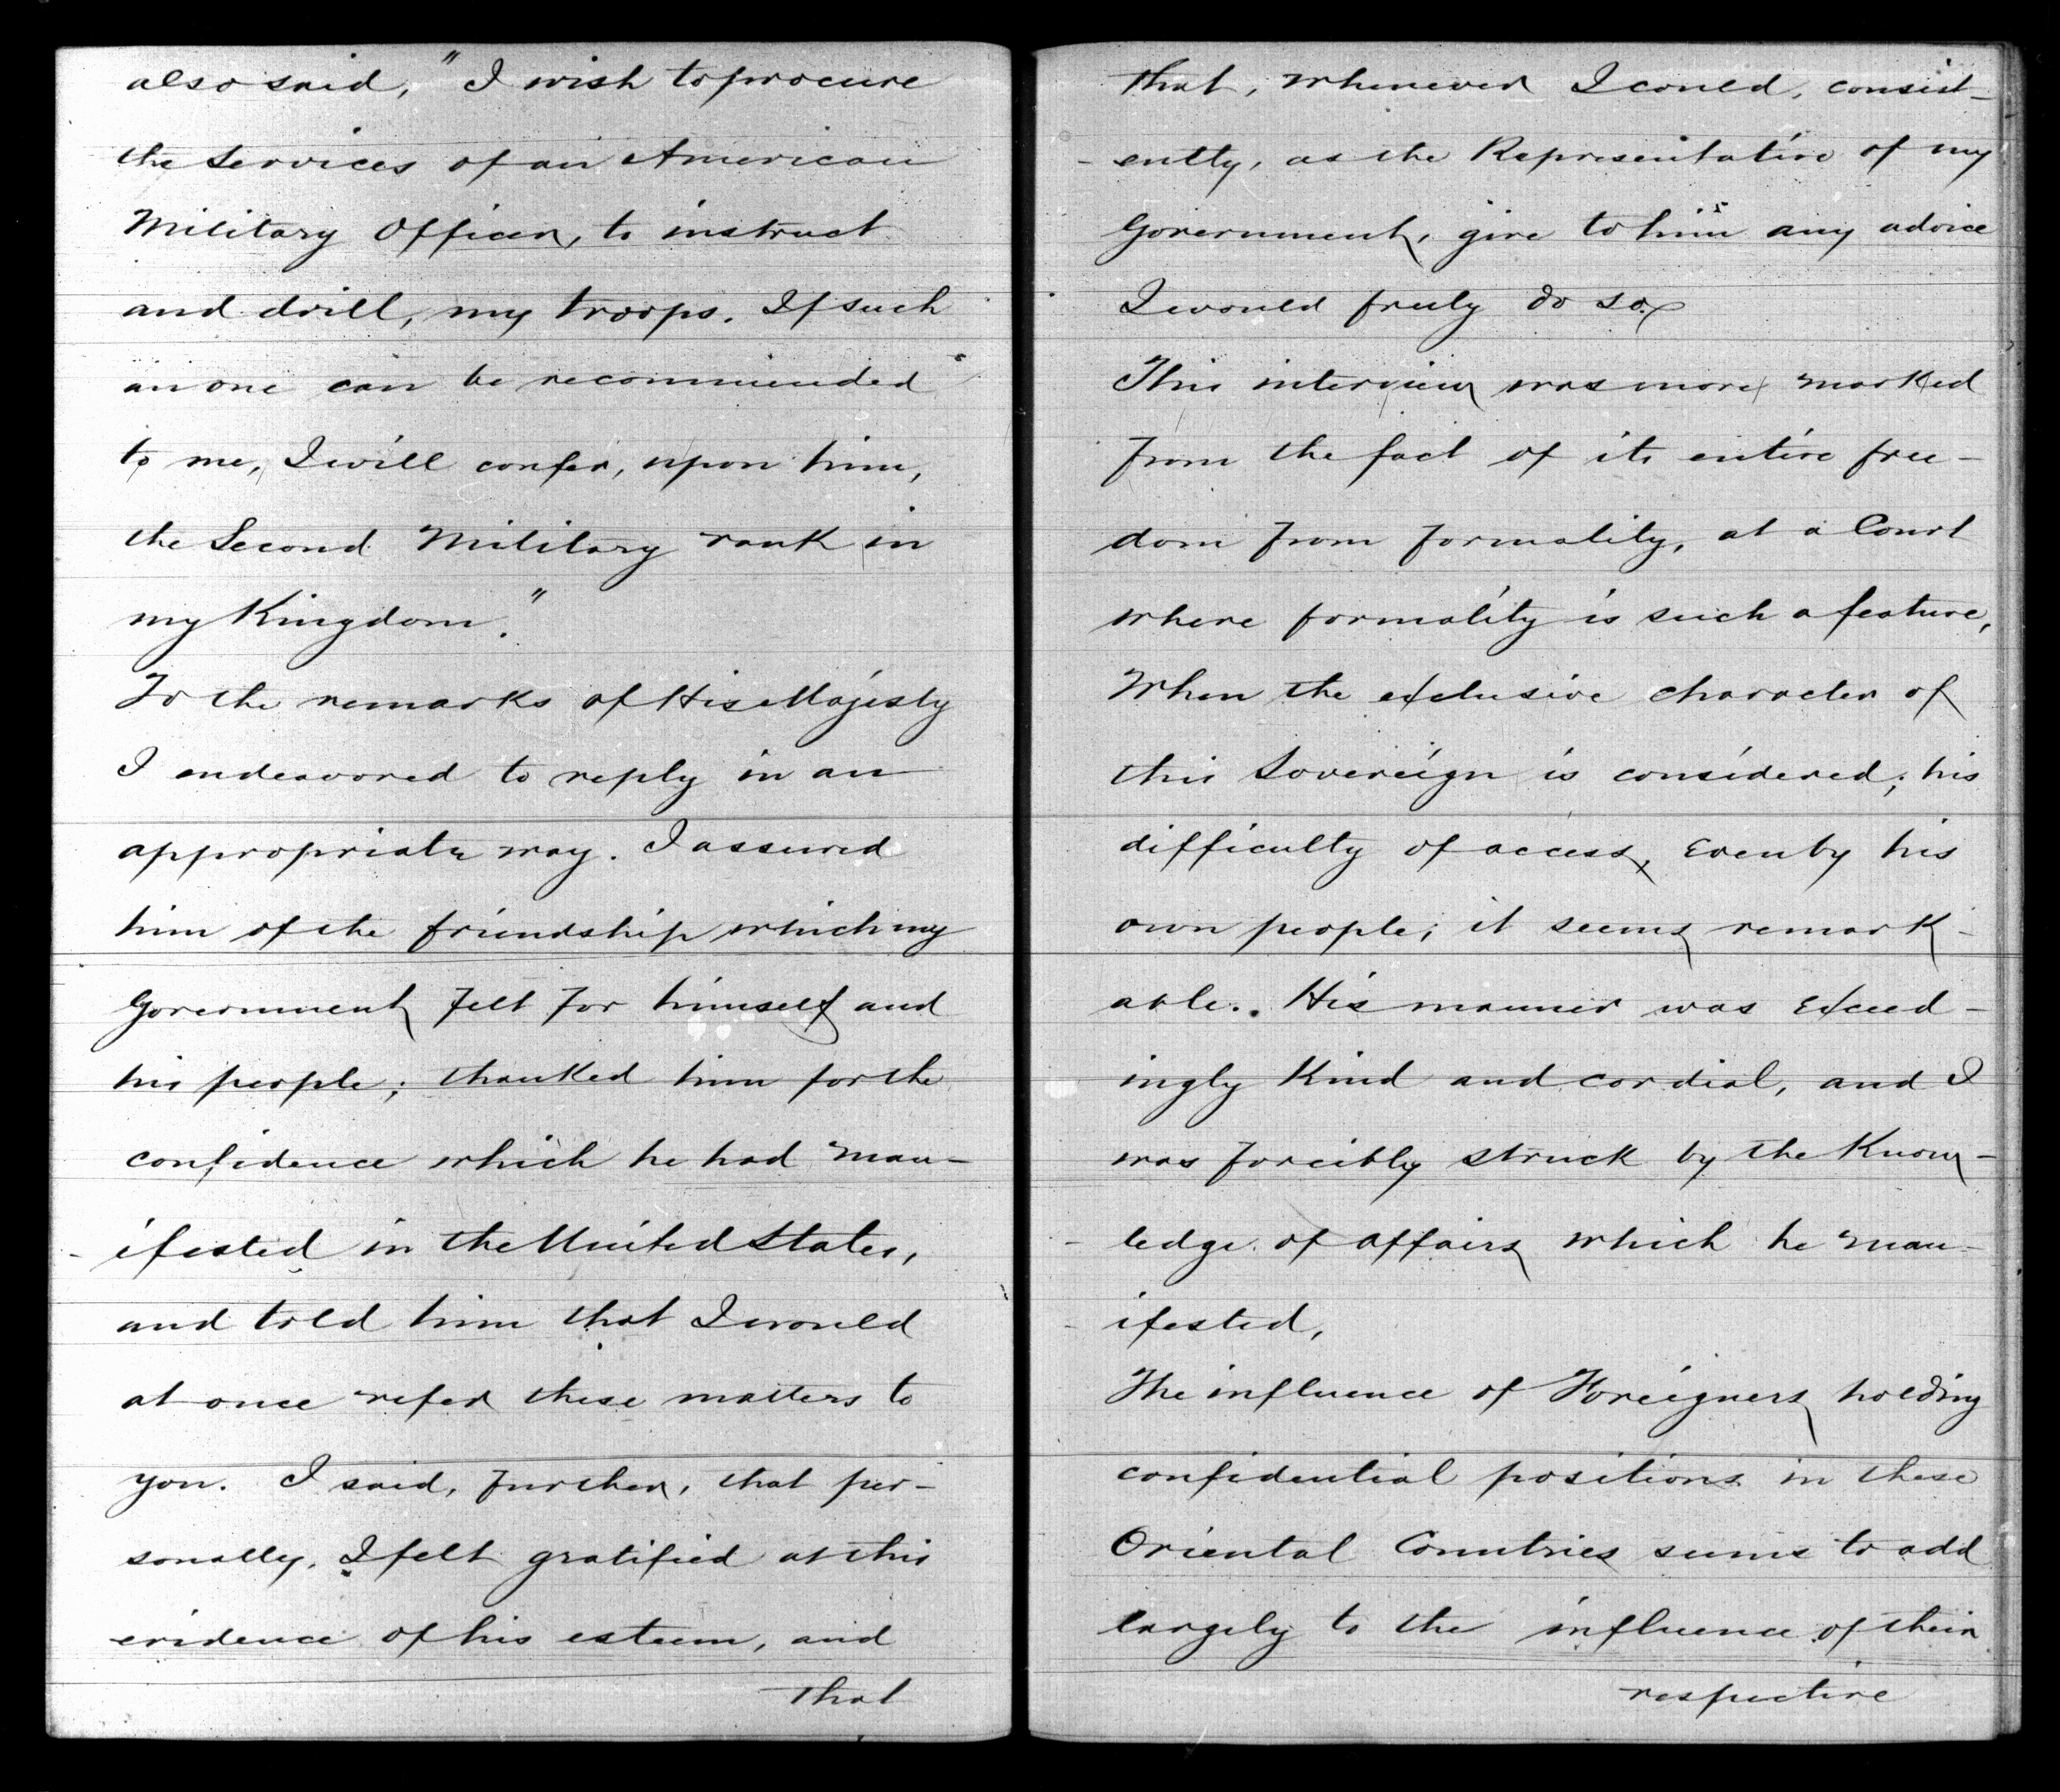 also said, "I wish to procure
the Services of an American
Military Officer, to instruct
and drill, my troops. If such
an one can be recommended
to me, I will confer, upon him,
the Second Military rank in
my Kingdom."
To the remarks of His Majesty
I endeavored to reply in an
appropriate way. I assured
him of the friendship which my
Government felt for himself and
his people; thanked him for the
confidence which he had man-
ifested in the United States,
and told him that I would
at once refer these matters to
you. I said, further, that per-
sonally, I felt gratified at this
evidence of his esteem, and
that
that, whenever I could, consist-
-ently, as the Representative of my
Government, give to him any advice
I would freely do so.
This interview was more marked
from the fact of its entire free-
dom from formality, at a Court
where formality is such a feature,
When the exclusive character of
this Sovereign is considered; his
difficulty of access, even by his
own people; it seems remark-
able. His manner was exceed-
ingly kind and cordial, and I
was forcibly struck by the Know-
ledge of affairs which he man-
ifested,
The influence of Foreigners holding
confidential positions in these
Oriental Countries seems to add
largely to the influence of their
respective